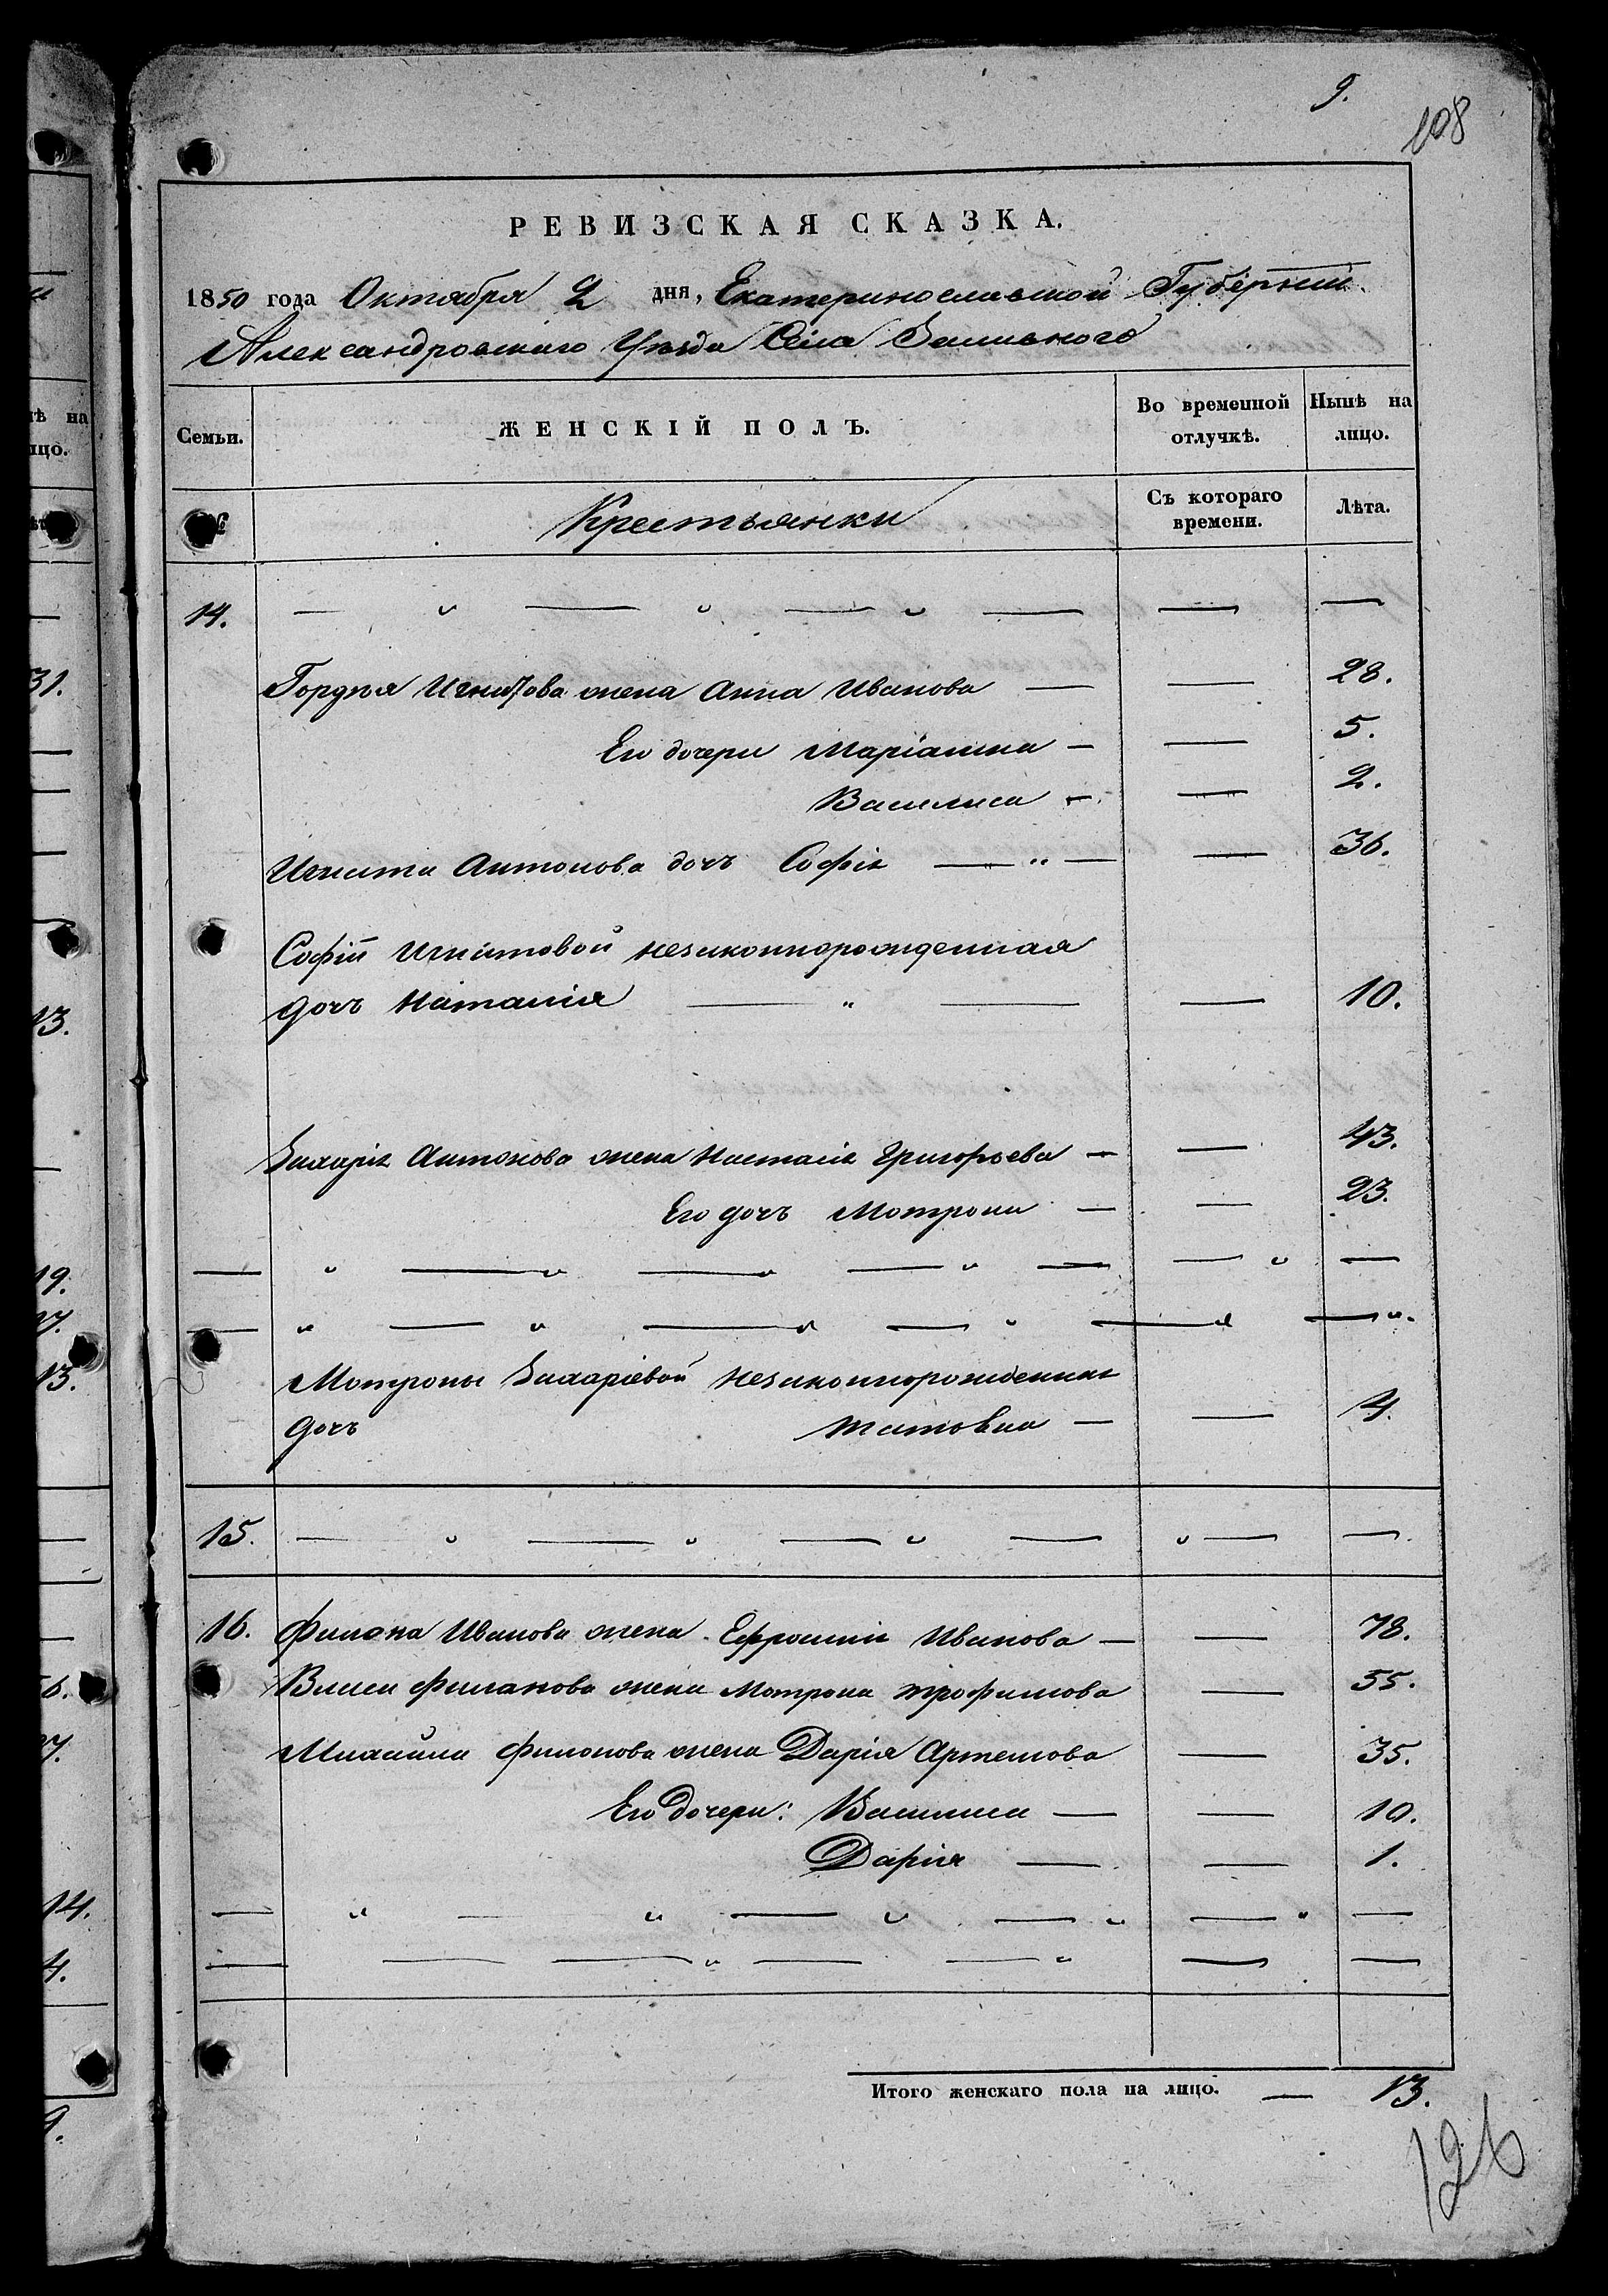 9.
108
РЕВИЗСКАЯ СКАЗКА.
1850 года Октября 2 дня, Екатеринославской Губерніи
Александровскаго Уѣзда Села
Семьи. ЖЕНСКІЙ ПОЛЪ. Во временной отлучкѣ. Нынѣ на лицо.
№ Крестьянки Съ котораго времени. Лѣта.
14. — " — " — " — — —
Гордѣя Игнатова жена Анна Иванова — — 28.
Его дочери Маріанна — — 5.
Василиса — — 2.
Игната Антонова дочь Софія — " — — 36.
Софіи Игнатовой незаконнорожденная
дочь Наталія — " — — 10.
Захарія Антонова жена Настасія Григорьева — — 43.
Его дочь Мотрона — — 23.
— " — " — " — " — — " —
— " — " — " — " — " — ".
Мотроны Захаріевой незаконнорожденная
дочь Татовна — — 4.
15. — " — " — " — " — —.
16. Филона Иванова жена Ефросинія Иванова — — 78.
Власа Филонова жена Мотрона Трофимова — 55.
Михайла Филонова жена Дарія Артемова — 35.
Его дочери: Василиса — — 10.
Дарія — — 1.
— " — " — " — " — " —
— — — " — — " — —
Итого женскаго пола на лицо. — 13.
126